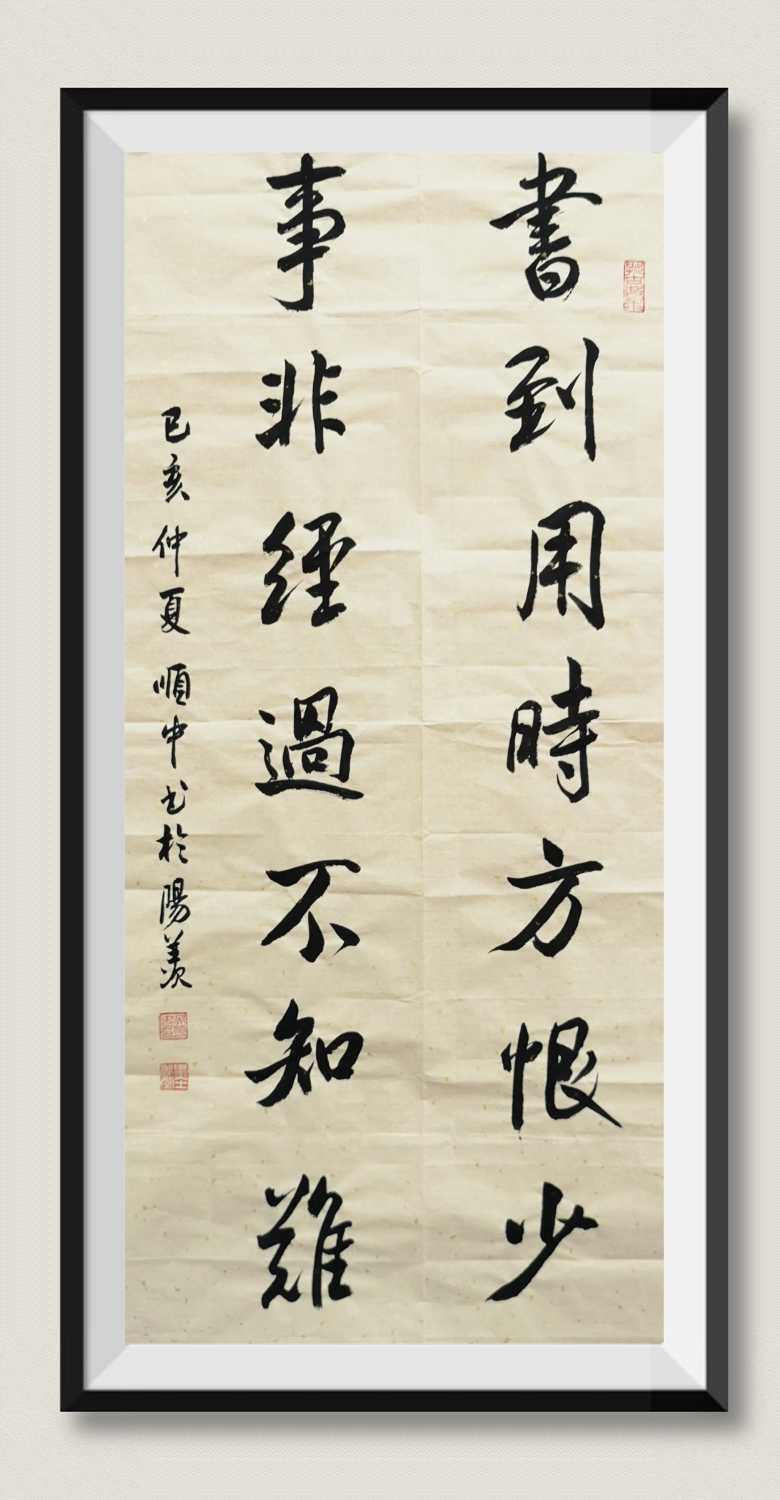 書到用時方恨少
事非經過不知難
己亥仲夏順中书於陽羡